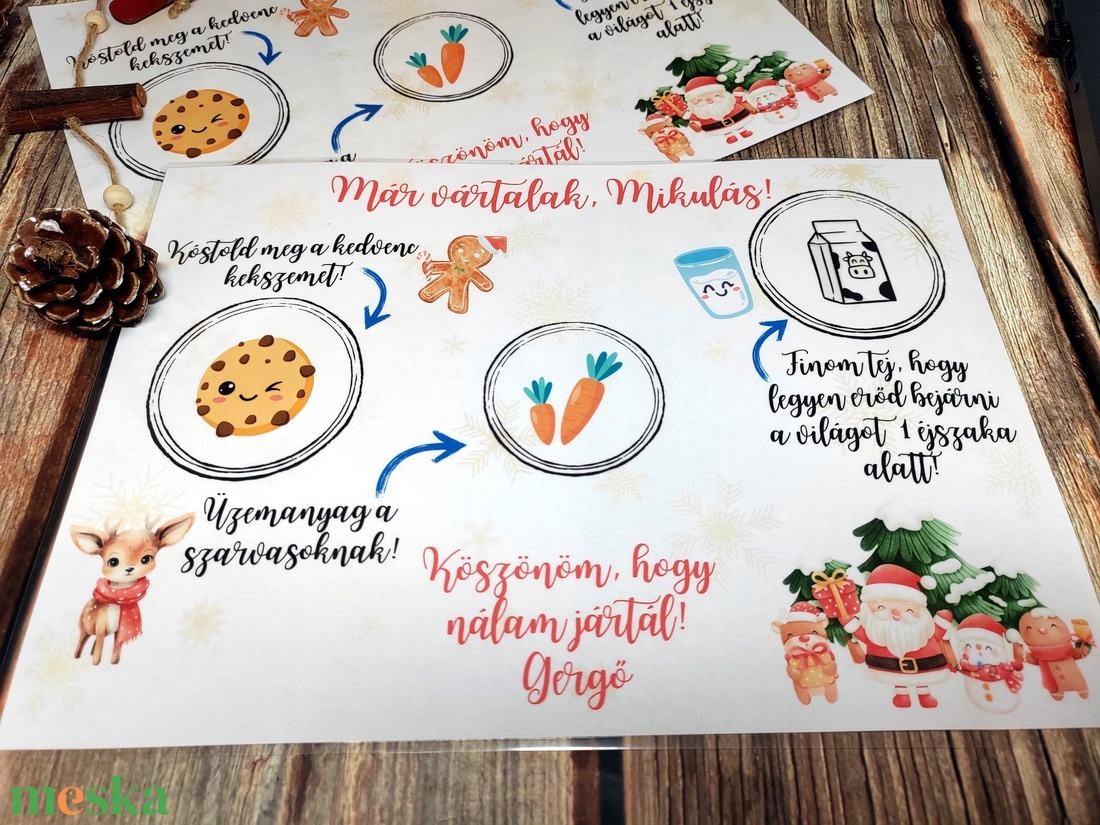 Kóstold meg a kedvenc
kekszemet!
legyen e
a világot 1 éjsz
alatt!
a
köszönöm, hogy
jártál!
Már vártalak, Mikulás!
Kóstold meg a kedvenc
kekszemet!
Finom tej, hogy
legyen erőd bejárni
a világot 1 éjszaka
alatt!
Üzemanyag a
szarvasoknak!
Köszönöm, hogy
nálam jártál!
Gergő
meska